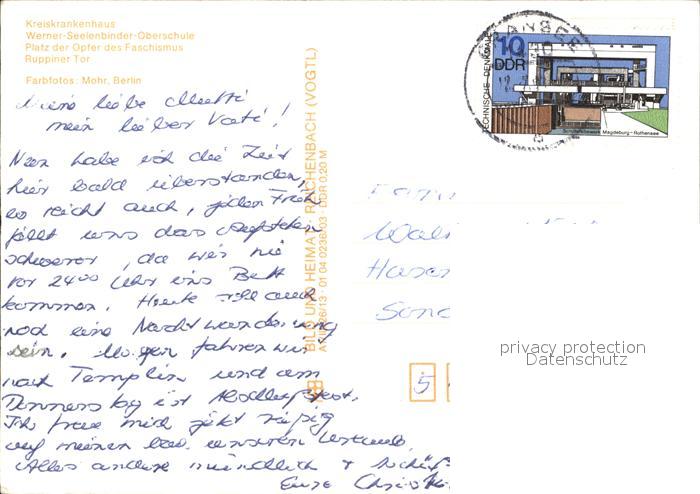 Kreiskrankenhaus
Werner-Seelenbinder-Oberschule
Platz der Opfer des Faschismus
Ruppiner Tor
Farbfotos: Mohr, Berlin
Meine liebe Mutti
mein lieber Vati!
Nun habe ich die Zeit
hier bald überstanden,
es reicht auch, jeden Früh
fällt uns das Aufstehen
schwerer, da wir nie
vor 24⁰⁰ Uhr ins Bett
kommen. Heute soll auch
noch eine Nachtwanderung
sein. Morgen fahren wir
nach Templin und am
Donnerstag ist Abschlußfest.
Ich freue mich jetzt riesig
auf meinen bzw. unseren Urlaub.
Alles andere mündlich +
Eure
BILD UND HEIMAT REICHENBACH (VOGTL)
A1/B 26/13 01 04 0236/03 DDR 0,20 M
GRANSEE
10
DDR
TECHNISCHE DENKMALE
Schiffshebewerk Magdeburg-Rothensee
Fam
Hase
5
privacy protection
Datenschutz